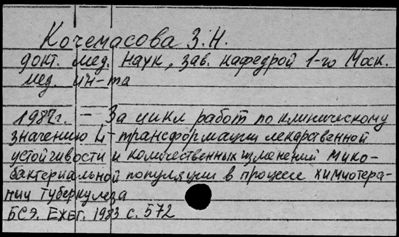 Кочемасова З.Н.
докт. мед. наук, зав. кафедрой 1-го Моск.
мед. ин-та
1982г. — За цикл работ по клиническому
значению L-трансформации лекарственной
устойчивости и количественных изменений мико-
бактериальной популяции в процессе химиотера-
пии туберкулеза
БСЭ. Ежег. 1983 с. 572